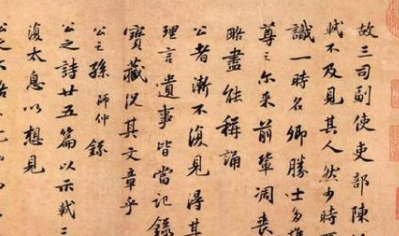 故三司副使吏部陳
軾不及見其人然少時
識一時名卿勝士多推
尊之尔来前輩凋喪
略盡能稱誦
公者漸不復見得其
理言遺事皆當記録
寶藏況其文章乎
公之孫師仲録
公之詩廿五篇以示軾三
復太息以想見